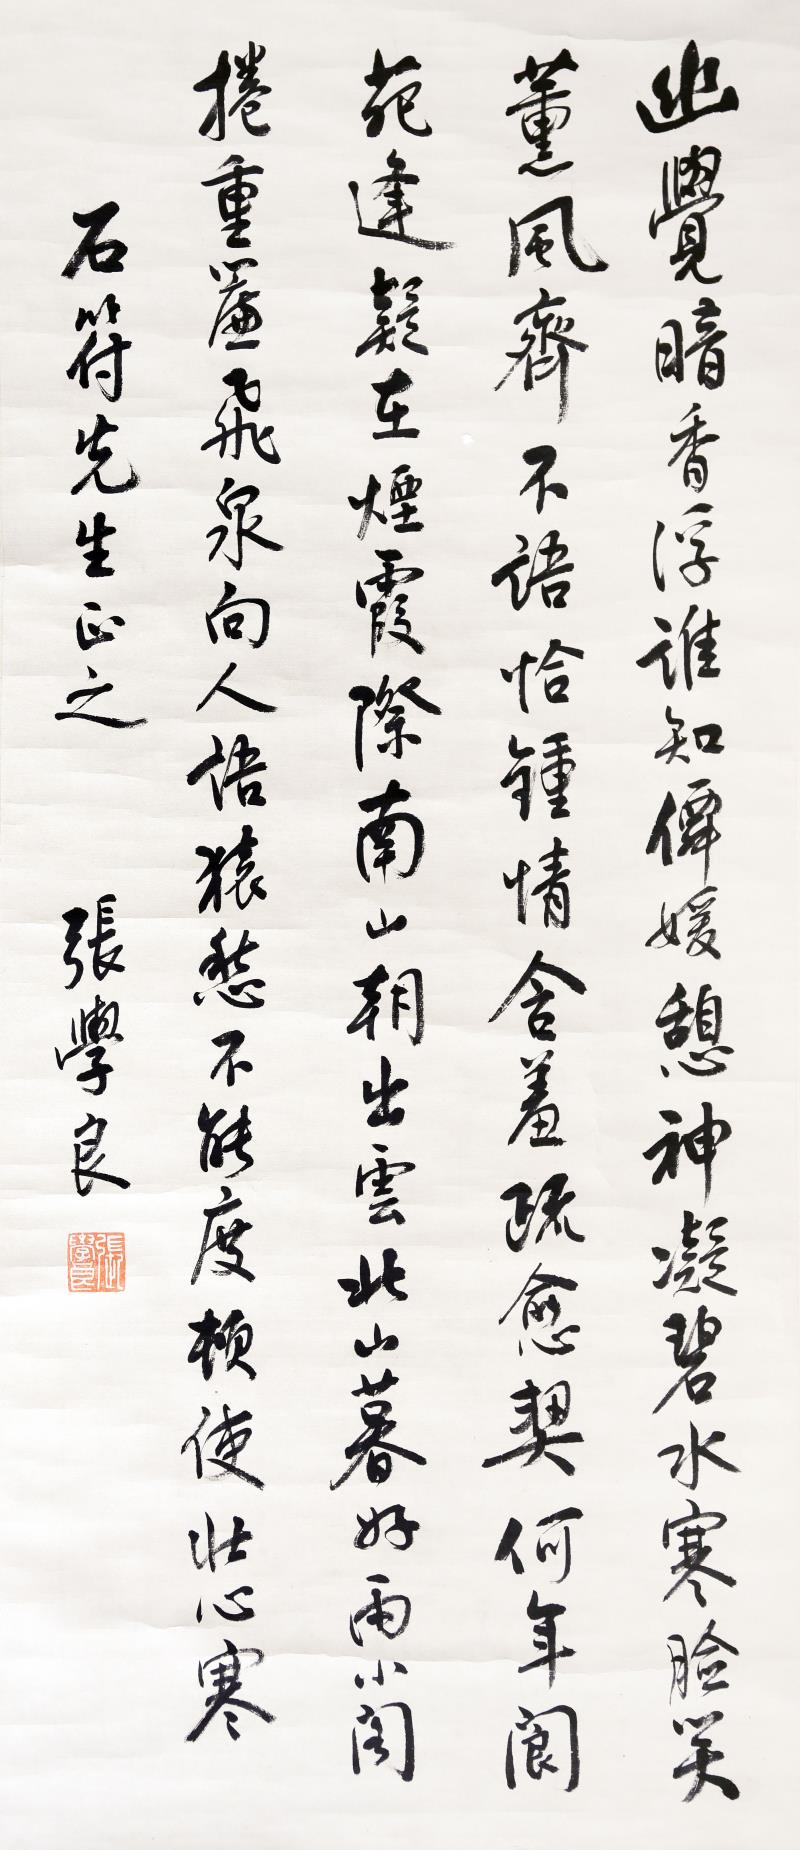 幽覺暗香浮誰知僊媛憩神凝碧水寒臉笑
薰風齊不語恰鍾情含羞疏愈契何年閬
苑逢疑在煙霞際南山朝出雲北山暮好雨小閣
捲重簾飛泉向人語猿愁不能度頓使壯心寒
石符先生正之
張學良
張學良